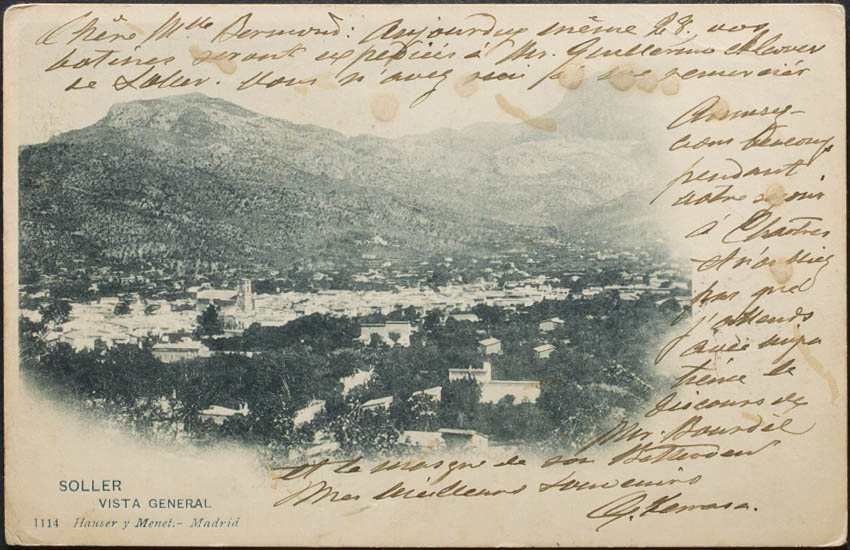 Chère Mlle Bermond: Aujourdux même 28. vos
botines seront expediées à Mr. Guillermo Alcover
de Soller. Vous n'avez rien à me remercier
Amusez-
vous beaucoup
pendant
votre séjour
à Chartres
et n'oubliez
pas que
j'attends
avec
le
discours de
Mr. Bourdel
et la masque de son Bethoven
Mes meilleurs souvenirs
G. Terrasa.
SOLLER
VISTA GENERAL
1114 Hauser y Menet.- Madrid